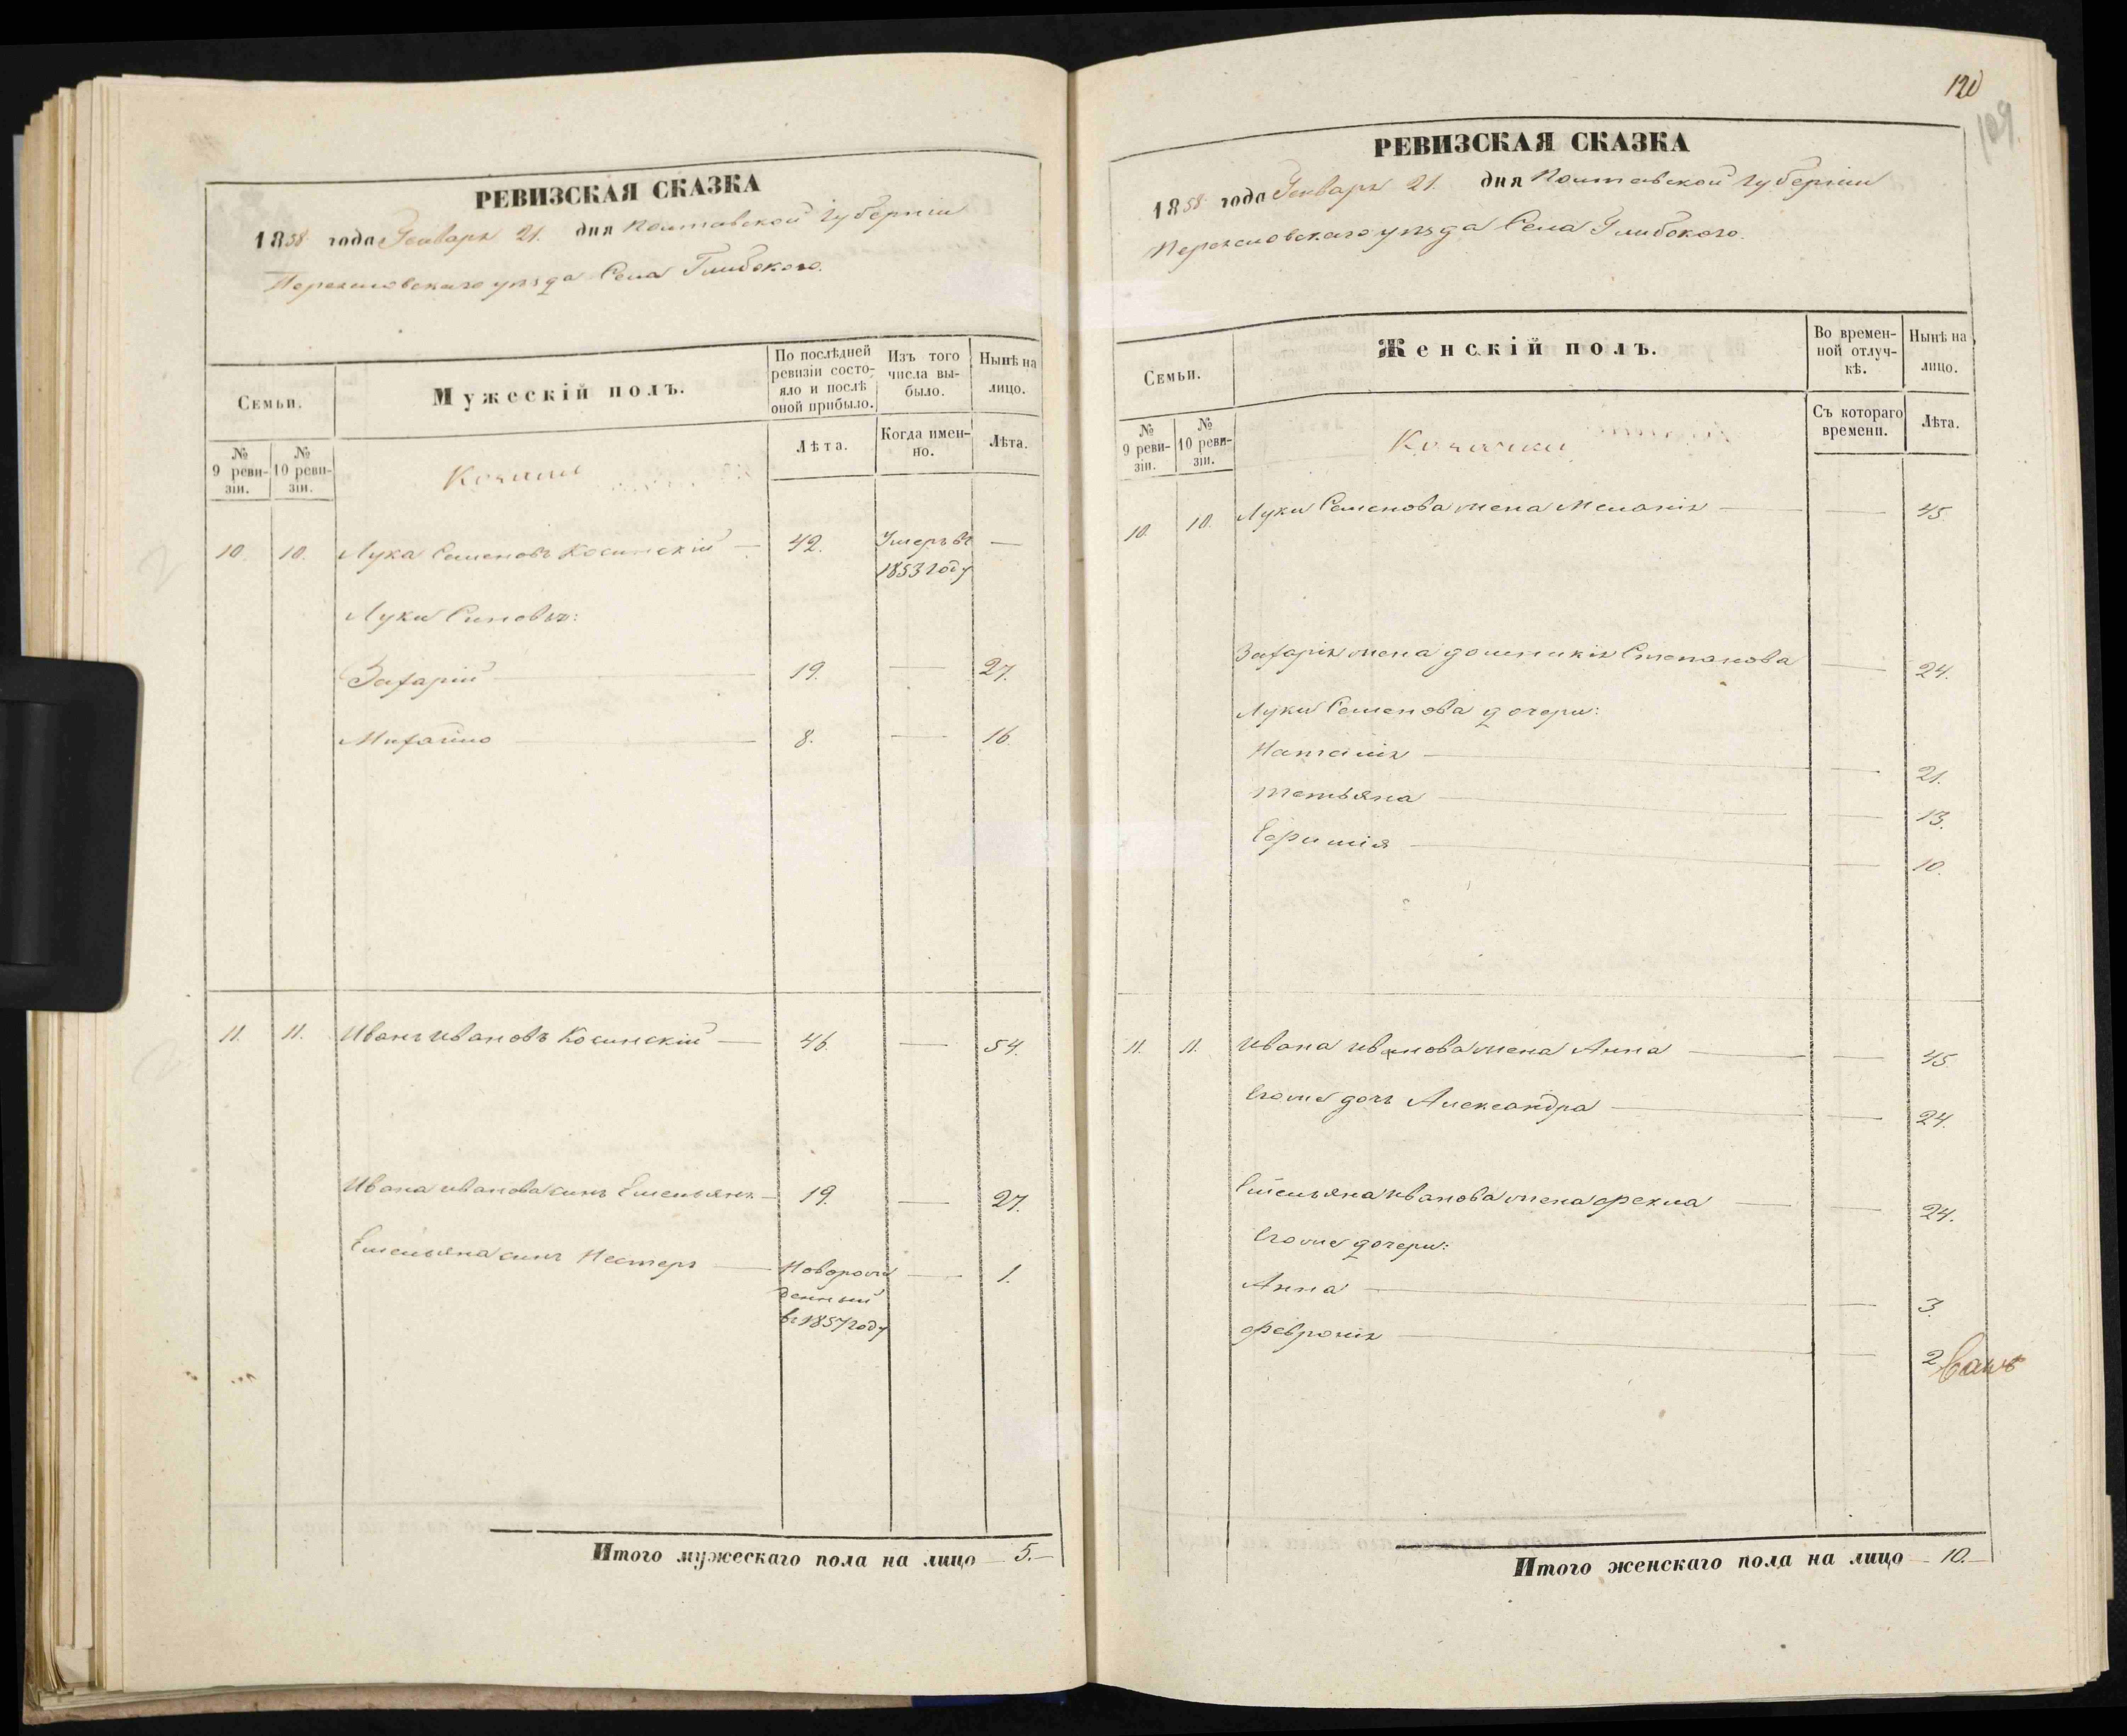 РЕВИЗСКАЯ СКАЗКА
1858 года Генваря 21. дня Полтавской губерніи
Переяславскаго уезда Села Глибокого.
Семьи.
Мужескій полъ.
По послѣдней ревизіи состо-
яло и послѣ
оной прибыло.
Изъ того
числа вы-
было.
Нынѣ на
лицо.
№
9 реви-
зіи.
№
10 реви-
зіи.
Козаки
Лѣта.
Когда имен-
но.
Лѣта.
10. 10. Лука Семеновъ Косинскій — 42. Умеръ въ —
1853 году
Луки Синовья:
Захарій — 19. — 27.
Михайло — 8. — 16.
11. 11. Иванъ Ивановъ Косинскій — 46. — 54.
Ивана Иванова синъ Емельянъ — 19. — 27.
Емельяна синъ Нестеръ — Новорож — 1.
денный
въ 1857 году
Итого мужескаго пола на лицо — 5. —
120
109.
РЕВИЗСКАЯ СКАЗКА
1858 года Генваря 21. дня Полтавской губерніи
Переяславскаго уезда Села Глибокого.
Семьи.
Женскій полъ.
Во времен-
ной отлуч-
кѣ.
Нынѣ на
лицо.
№
9 реви-
зіи.
№
10 реви-
зіи.
Козачки
Съ котораго
времени.
Лѣта.
10. 10. Луки Семенова жена Меланія — — 45.
Захарія жена Домникія Степанова — 24.
Луки Семенова дочери:
Наталія — — 21.
Татьяна — — 13.
Ефимія — — 10.
11. 11. Ивана Иванова жена Анна — — 45
Егоже дочь Александра — — 24.
Емельяна Иванова жена Фекла — — 24.
Егоже дочери:
Анна — — 3.
Февронія — — 2
Итого женскаго пола на лицо — 10. —